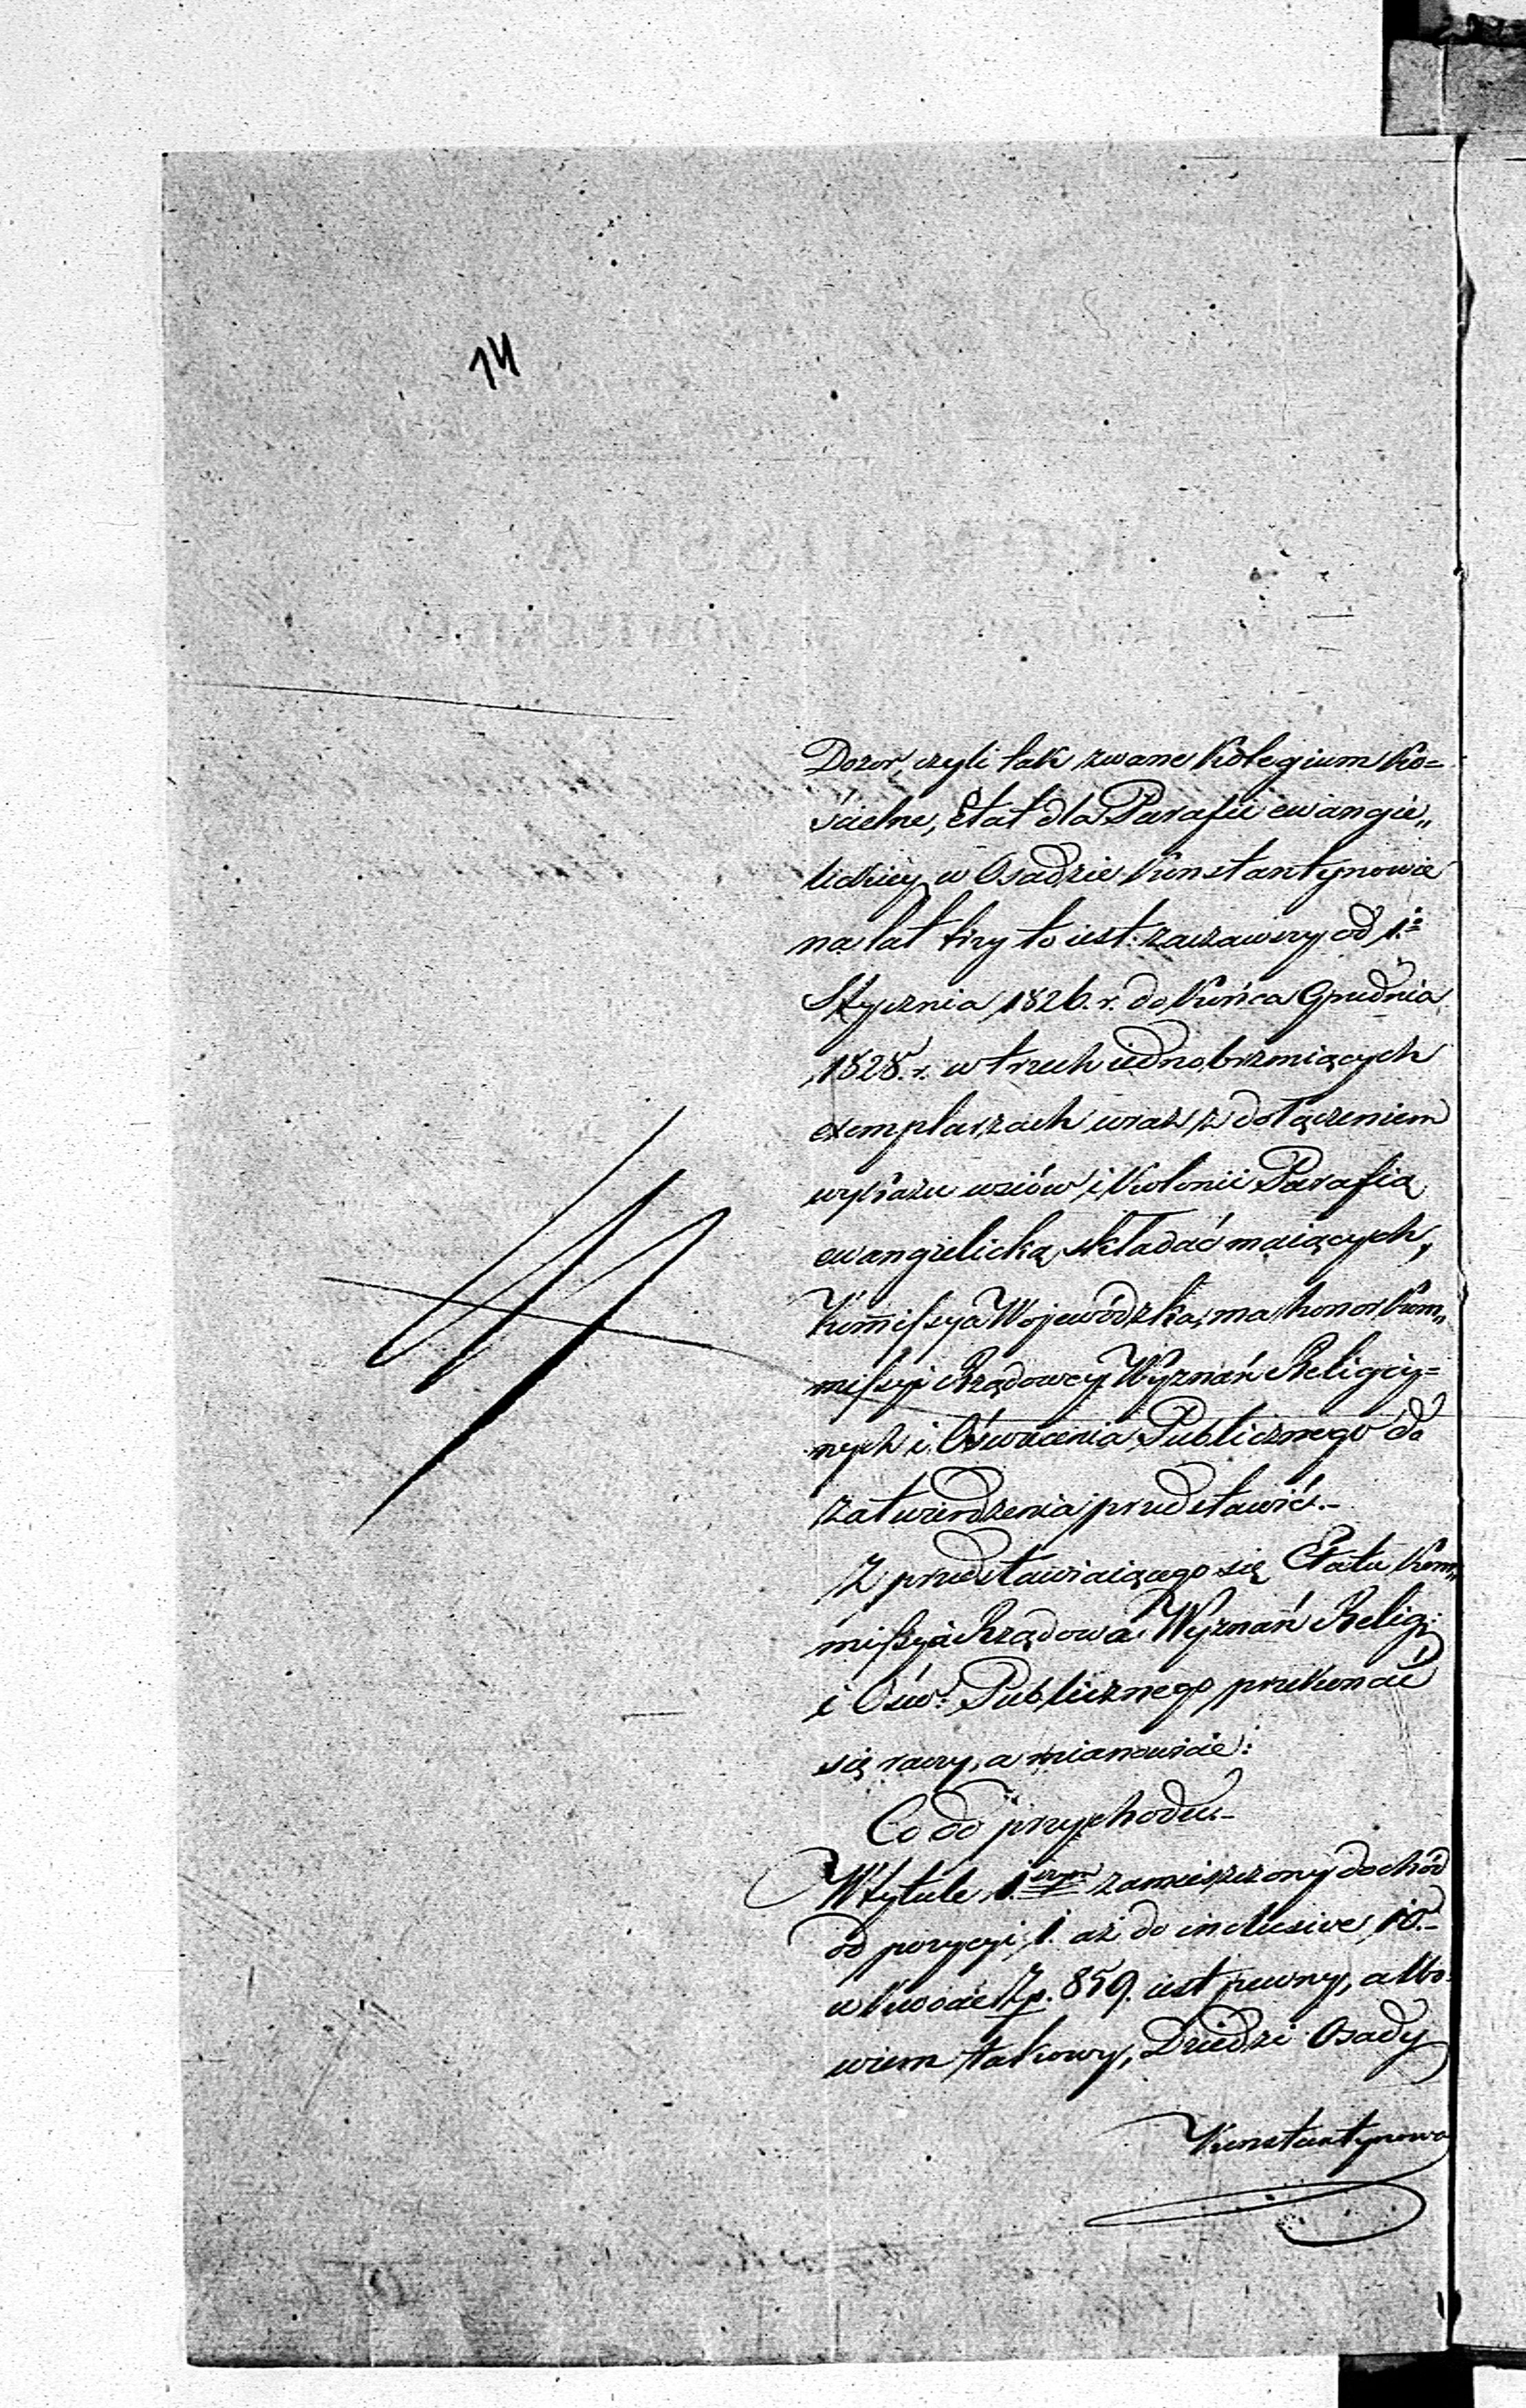 14
Dozor, czyli tak zwane Kolegium Ko=
ścielne, Etat dla Parafii ewangie„
lickiey w Osadzie Konstantynowie
na lat trzy to iest: zacząwszy od 1.
Stycznia 1826. r. do końca Grudnia
1828. r. w trzech iednobrzmiących
exemplarzach wraz z dołączeniem
wykazu wsiów i Kolonii Parafią
ewangielicką składać maiących,
Kommissya Wojewódzka, ma honor Kom„
missyi Rządowey Wyznań Religiy=
nych i Oświecenia Publicznego do
zatwierdzenia przedstawić.-
Z przedstawiaiącego się Etatu Kom„
missya Rządowa Wyznań Relig:
i Ośw: Publicznego przekonać
się raczy, a mianowicie:
Co do przychodu.-
W tytule 1.szym zamieszczony dochód
od pozycyi 1. aż do inclusive 10.-
w kwocie Zp. 859. iest pewny, albo
wiem takowy, Dziedzic Osady
Konstantynowa